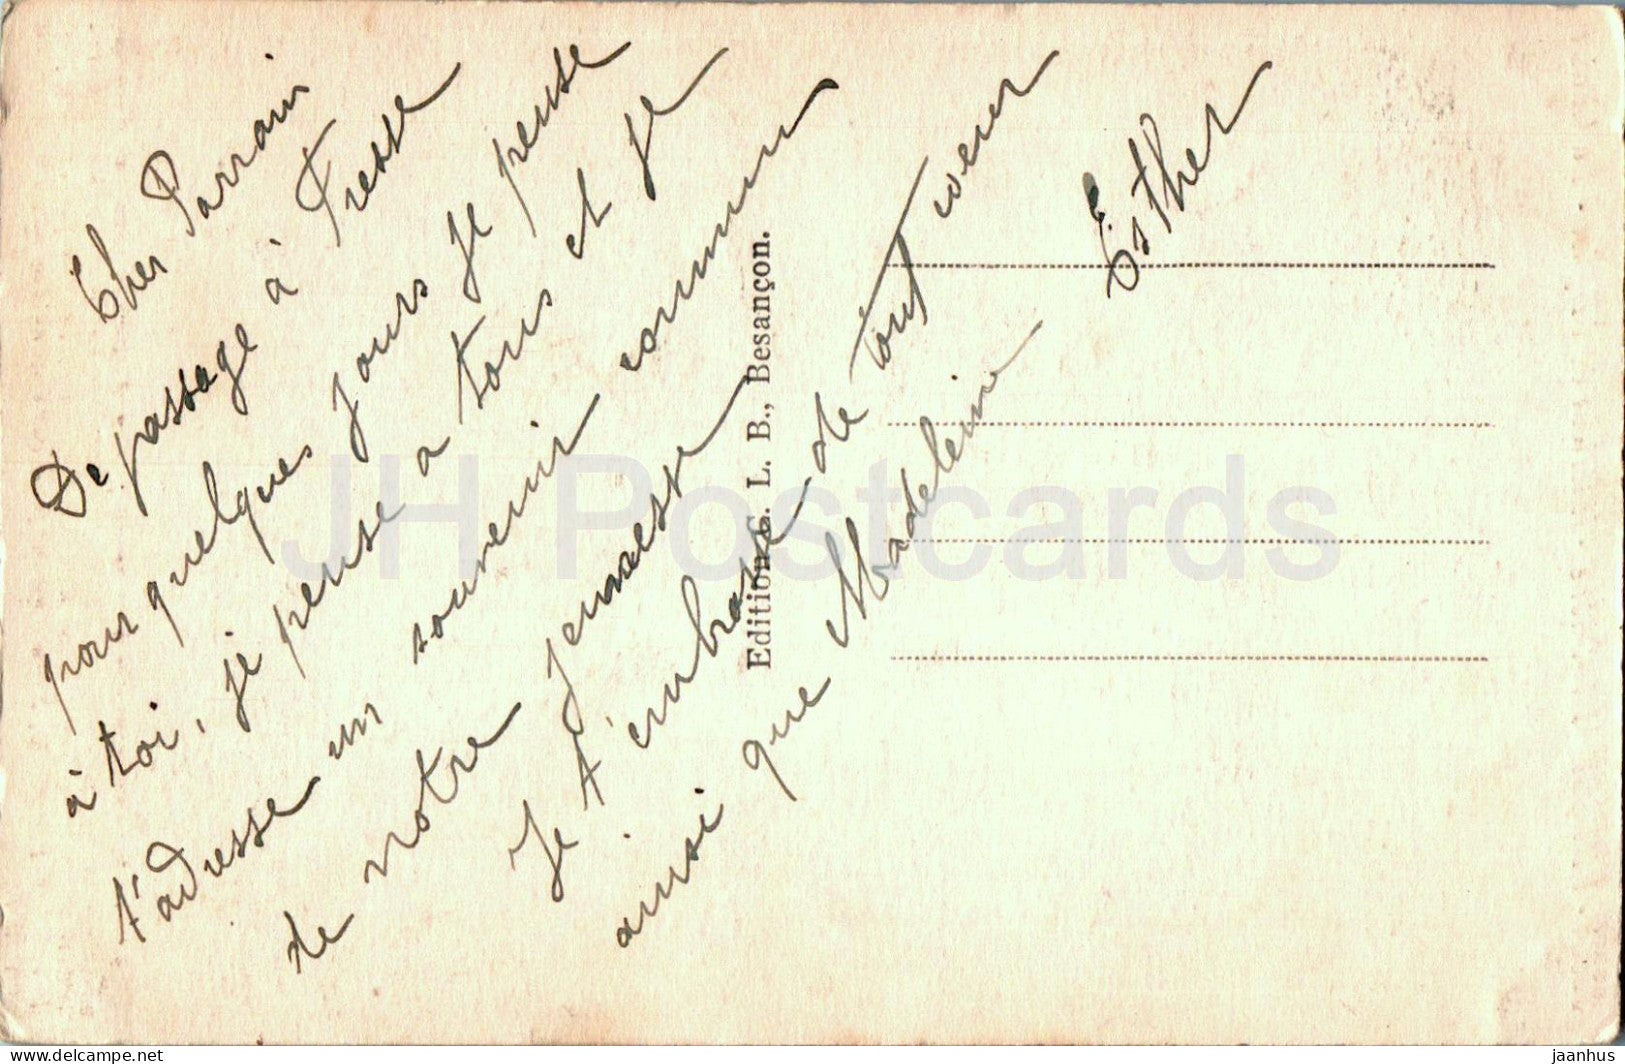 Cher Parrain
De passage à Fresse
pour quelques jours je pense
à toi, je pense a tous et je
t'adresse un souvenir commun
de notre jeunesse
Je t'embrasse de tout coeur
ainsi que Madeleine
Esther
Edition C. L. B., Besançon.
JH Postcards
delcampe.net
jaanhus